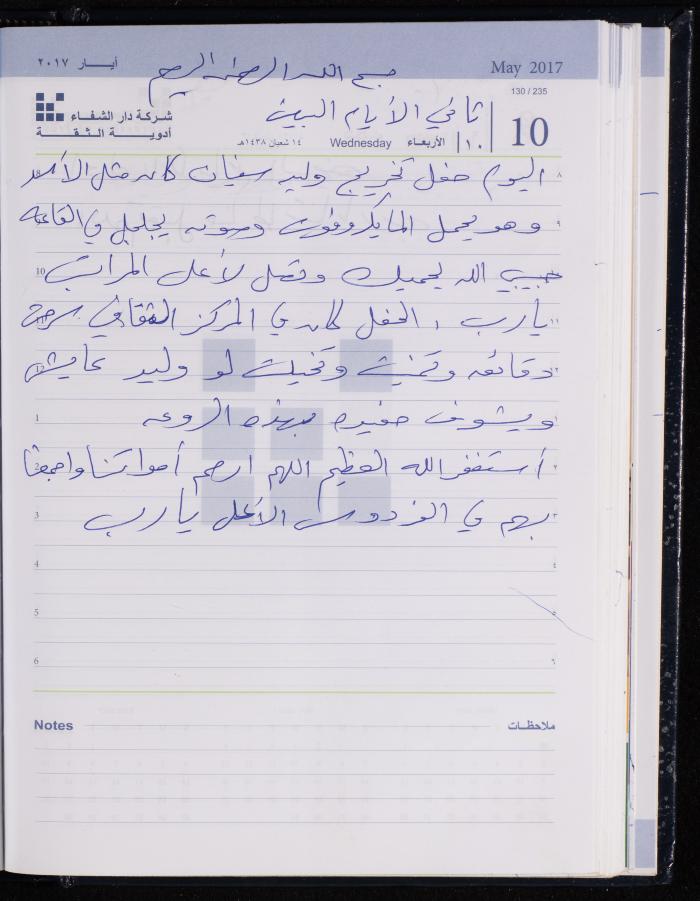 أيار ٢٠١٧
May 2017
بسم الله الرحمن الرحيم
130 / 235
شركة دار الشفاء
أدوية الثقة
ثاني الأيام البيض
10
١٠
الأربعاء
Wednesday
١٤ شعبان ١٤٣٨هـ
اليوم حفل تخريج وليد سفيان كان مثل الأسد
وهو يحمل المايكروفون وصوته يجلجل في القاعة
حبيبي الله يحميك وتصل لأعلى المراتب
يارب ، الحفل كان في المركز الثقافي سرحت
دقائق وتمنيت وتخيلت لو وليد عايش
ويشوف حفيده بهذه الروعه
أستغفر الله العظيم اللهم ارحم أمواتنا واجمعنا
بهم في الفردوس الأعلى يارب
Notes
ملاحظات